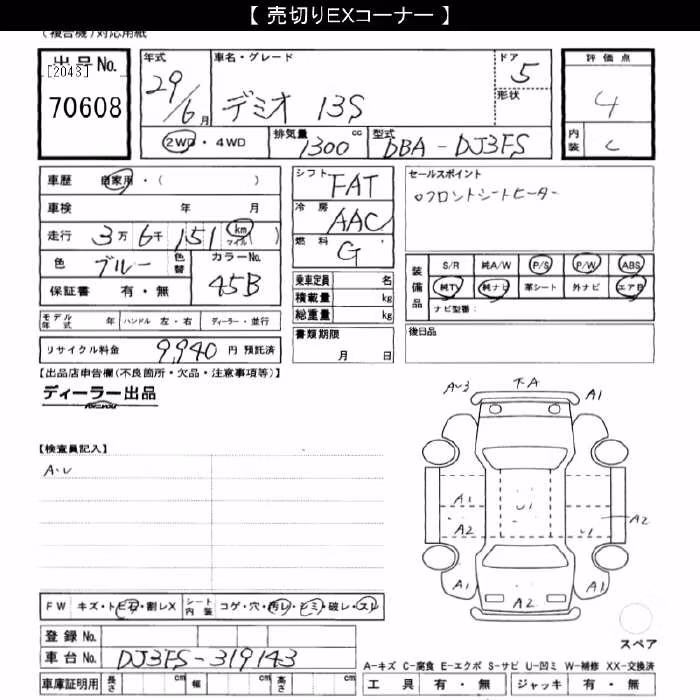 【 売切りEXコーナー 】
(複合機)対応用紙
出品No.
[2043]
70608
年式
29/6月
車名・グレード
デミオ 13S
ドア
5
形状
2WD・4WD
排気量
1300cc
型式
DBA-DJ3FS
評価点
4
内装
C
車歴 自家用・( )
車検 年 月
走行 3万6千151 km マイル ( )
色 ブルー 色替
カラーNo.
45B
保証書 有・無
モデル年式 年 ハンドル 左・右 ディーラー・並行
リサイクル料金 9,940 円 預託済
シフト FAT
冷房 AAC
燃料 G
乗車定員 名
積載量 kg
総重量 kg
書類期限
月 日
セールスポイント
○フロントシートヒーター
装備品
S/R 純A/W P/S P/W ABS
純TV 純ナビ 革シート 外ナビ エアB
ナビ型番:
後日品
【出品店申告欄(不良箇所・欠品・注意事項等)】
ディーラー出品
【検査員記入】
A・U
A~3
下A
A1
A1
A2
U1
U1
A2
A1
A2
A1
スペア
FW キズ・トビ石・割レX
シート内装 コゲ・穴・汚レ・シミ・破レ・スレ
登録No.
車台No. DJ3FS-319143
車庫証明用 長さ cm 幅 cm 高さ cm
A-キズ C-腐食 E-エクボ S-サビ U-凹ミ W-補修 XX-交換済
工具 有・無 ジャッキ 有・無